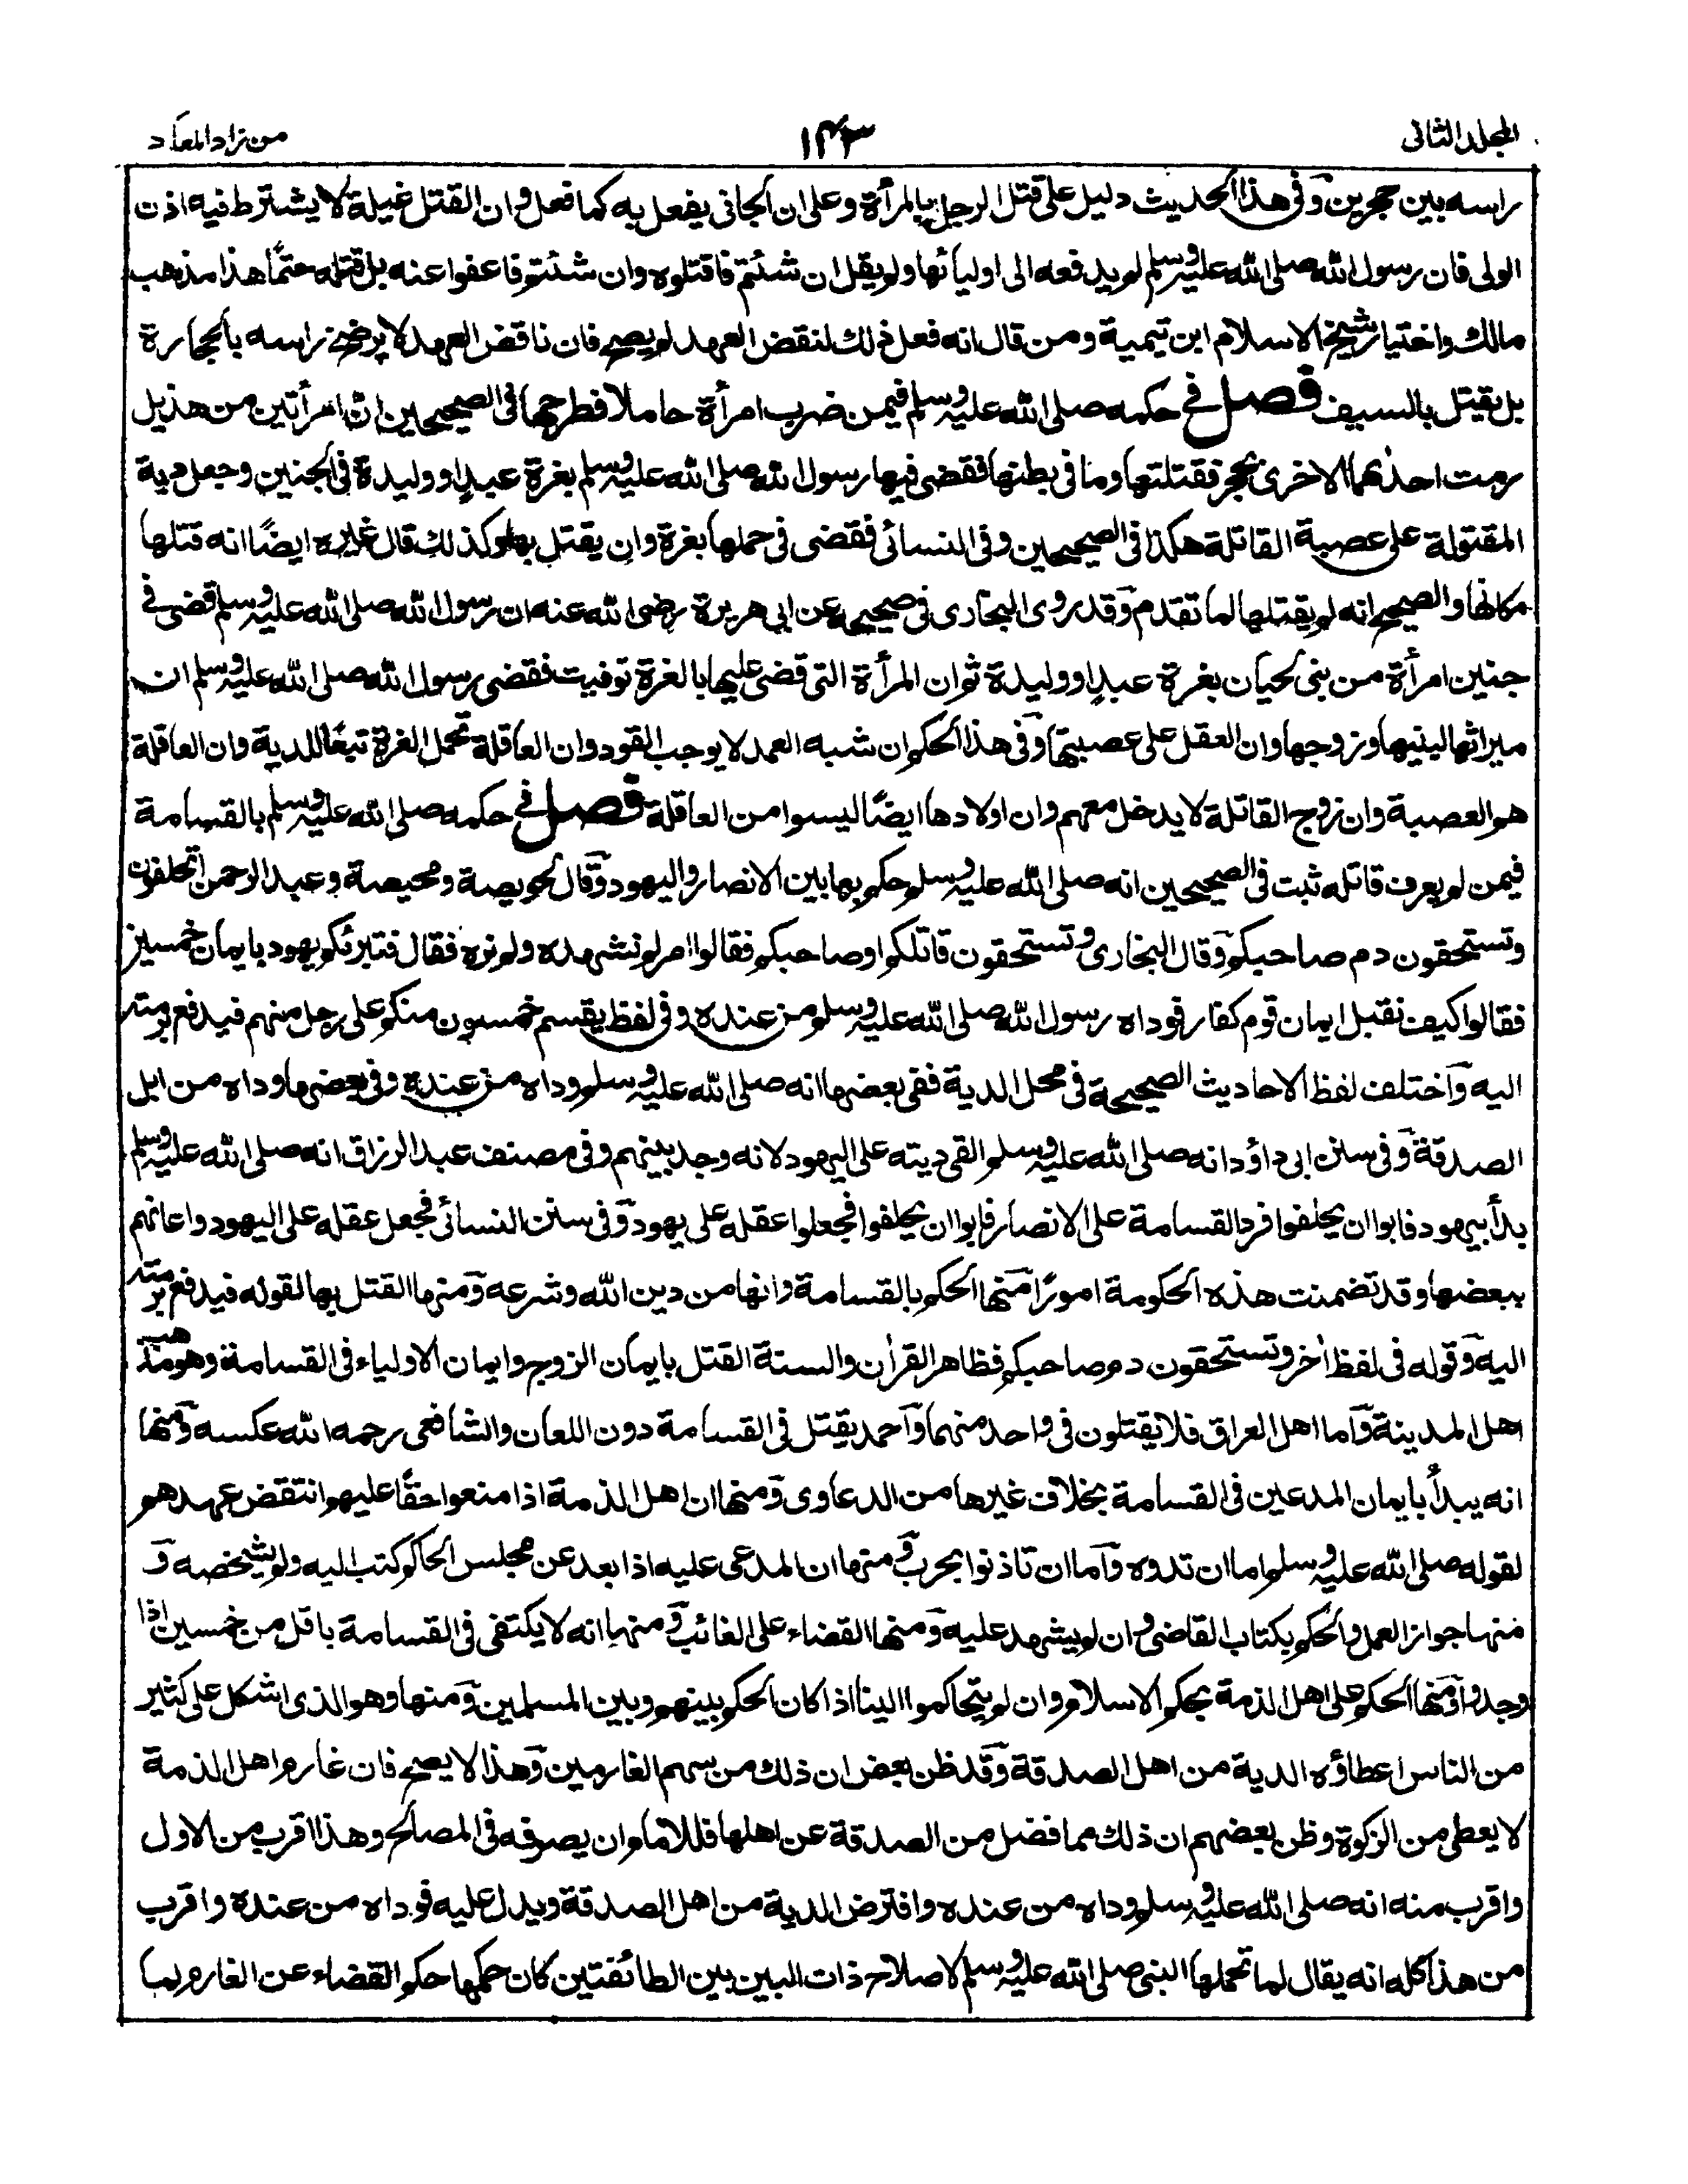 المجلد الثانی
١٤٣
من زاد المعاد
راسه بين حجرين وفى هذا الحديث دليل على قتل الرجل بالمرأة وعلى ان الجانى يفعل به كما فعل وان القتل غيلة لا يشترط فيه اذن
الولى فان رسول الله صلى الله عليه وسلم لم يدفعه الى اوليائها ولم يقل ان شئتم فاقتلوه وان شئتم فاعفوا عنه بل قتله حتمًا هذا مذهب
مالك واختيار شيخ الاسلام ابن تيمية ومن قال انه فعل ذلك لنقض العهد لم يصح فان ناقض العهد لا يرضخ راسه بالحجارة
بل يقتل بالسيف فصل فى حكمه صلى الله عليه وسلم فيمن ضرب امرأة حاملا فطرحها فى الصحيحين ان امرأتين من هذيل
رمت احداهما الاخرى بحجر فقتلتها وما فى بطنها فقضى فيها رسول الله صلى الله عليه وسلم بغرة عبد او وليدة فى الجنين وجعل دية
المقتولة على عصبة القاتلة هكذا فى الصحيحين وفى النسائى فقضى فى حملها بغرة وان يقتل بها وكذلك قال غيره ايضًا انه قتلها
مكانها والصحيح انه لم يقتلها لما تقدم وقد روى البخارى فى صحيحه عن ابى هريرة رضى الله عنه ان رسول الله صلى الله عليه وسلم قضى فى
جنين امرأة من بنى لحيان بغرة عبد او وليدة ثم ان المرأة التى قضى عليها بالغرة توفيت فقضى رسول الله صلى الله عليه وسلم ان
ميراثها لبنيها وزوجها وان العقل على عصبتها وفى هذا الحكم ان شبه العمد لا يوجب القود وان العاقلة تحمل الغرة تبعًا للدية وان العاقلة
هم العصبة وان زوج القاتلة لا يدخل معهم وان اولادها ايضًا ليسوا من العاقلة فصل فى حكمه صلى الله عليه وسلم بالقسامة
فيمن لم يعرف قاتله ثبت فى الصحيحين انه صلى الله عليه وسلم حكم بها بين الانصار واليهود وقال لحويصة ومحيصة وعبد الرحمن اتحلفون
وتستحقون دم صاحبكم وقال البخارى وتستحقون قاتلكم او صاحبكم فقالوا امر لم نشهده ولم نره فقال فتبرئكم يهود بايمان خمسين
فقالوا كيف نقبل ايمان قوم كفار فوداه رسول الله صلى الله عليه وسلم من عنده وفى لفظ يقسم خمسون منكم على رجل منهم فيدفع برمته
اليه واختلف لفظ الاحاديث الصحيحة فى محل الدية ففى بعضها انه صلى الله عليه وسلم وداه من عنده وفى بعضها وداه من ابل
الصدقة وفى سنن ابى داؤد انه صلى الله عليه وسلم القى ديته على اليهود لانه وجد بينهم وفى مصنف عبد الرزاق انه صلى الله عليه وسلم
بدأ بيهود فابوا ان يحلفوا فرد القسامة على الانصار فابوا ان يحلفوا فجعلوا عقله على يهود وفى سنن النسائى فجعل عقله على اليهود واعانهم
ببعضها وقد تضمنت هذه الحكومة امورًا منها الحكم بالقسامة وانها من دين الله وشرعه ومنها القتل بها لقوله فيدفع برمته
اليه وقوله فى لفظ اخر وتستحقون دم صاحبكم فظاهر القرأن والسنة القتل بايمان الزوج وايمان الاولياء فى القسامة وهو مذهب
اهل المدينة واما اهل العراق فلا يقتلون فى واحد منهما واحمد يقتل فى القسامة دون اللعان والشافعى رحمه الله عكسه ومنها
انه يبدأ بايمان المدعين فى القسامة بخلاف غيرها من الدعاوى ومنها ان اهل الذمة اذا منعوا حقًا عليهم انتقض عهدهم
لقوله صلى الله عليه وسلم اما ان تدوه واما ان تاذنوا بحرب ومنها ان المدعى عليه اذا بعد عن مجلس الحاكم كتب اليه ولم يشخصه و
منها جواز العمل والحكم بكتاب القاضى وان لم يشهد عليه ومنها القضاء على الغائب ومنها انه لا يكتفى فى القسامة باقل من خمسين اذا
وجدوا ومنها الحكم على اهل الذمة بحكم الاسلام وان لم يتحاكموا الينا اذا كان الحكم بينهم وبين المسلمين ومنها وهو الذى اشكل على كثير
من الناس اعطاؤه الدية من اهل الصدقة وقد ظن بعض ان ذلك من سهم الغارمين وهذا لا يصح فان غارم اهل الذمة
لا يعطى من الزكوة وظن بعضهم ان ذلك مما فضل من الصدقة عن اهلها فللامام ان يصرفه فى المصالح وهذا اقرب من الاول
واقرب منه انه صلى الله عليه وسلم وداه من عنده وافترض الدية من اهل الصدقة ويدل عليه فوداه من عنده واقرب
من هذا كله انه يقال لما تحملها النبى صلى الله عليه وسلم لاصلاح ذات البين بين الطائفتين كان حكمها حكم القضاء عن الغارم لما